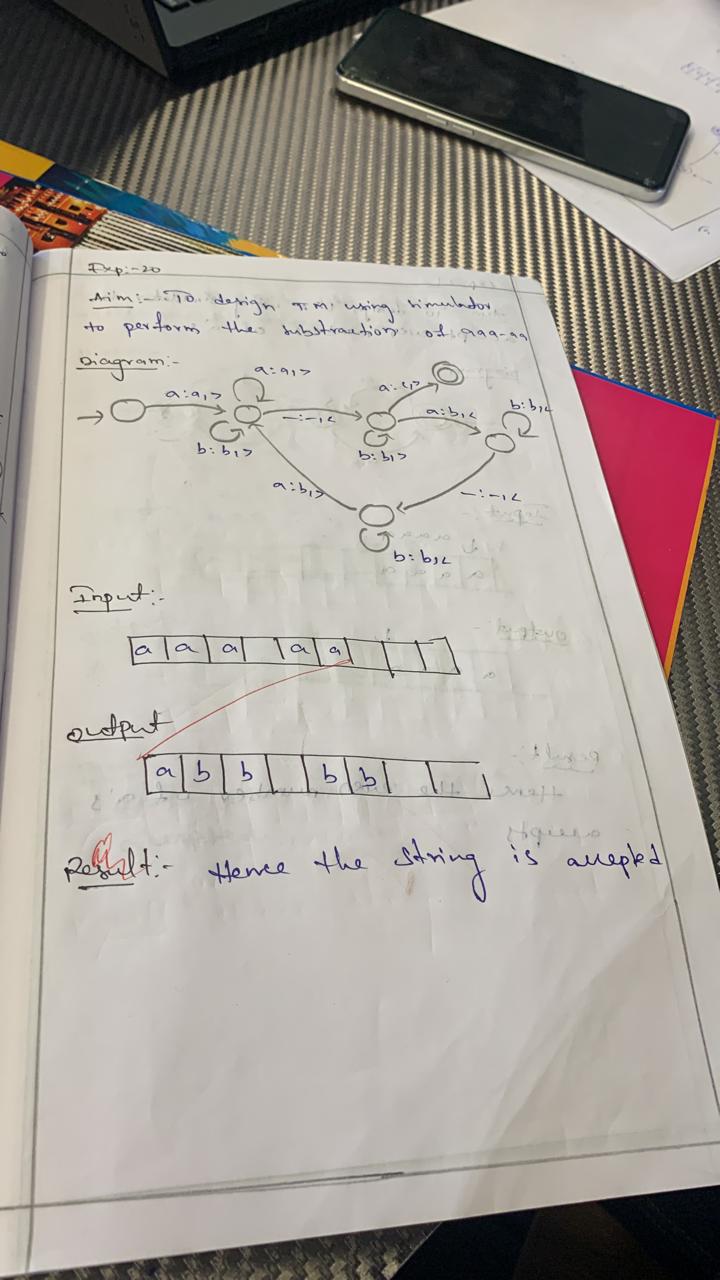 Exp:-20
Aim:- To design T.M. using simulador
to perform the substraction of aaa-aa
Diagram:-
a:a,>
a:a,>
b:b,>
-:-,<
b:b,>
a:b,<
b:b,<
-:-,<
a:b,>
b:b,<
Input:-
a a a a a
output
a b b b b
Result:- Hence the string is accepted